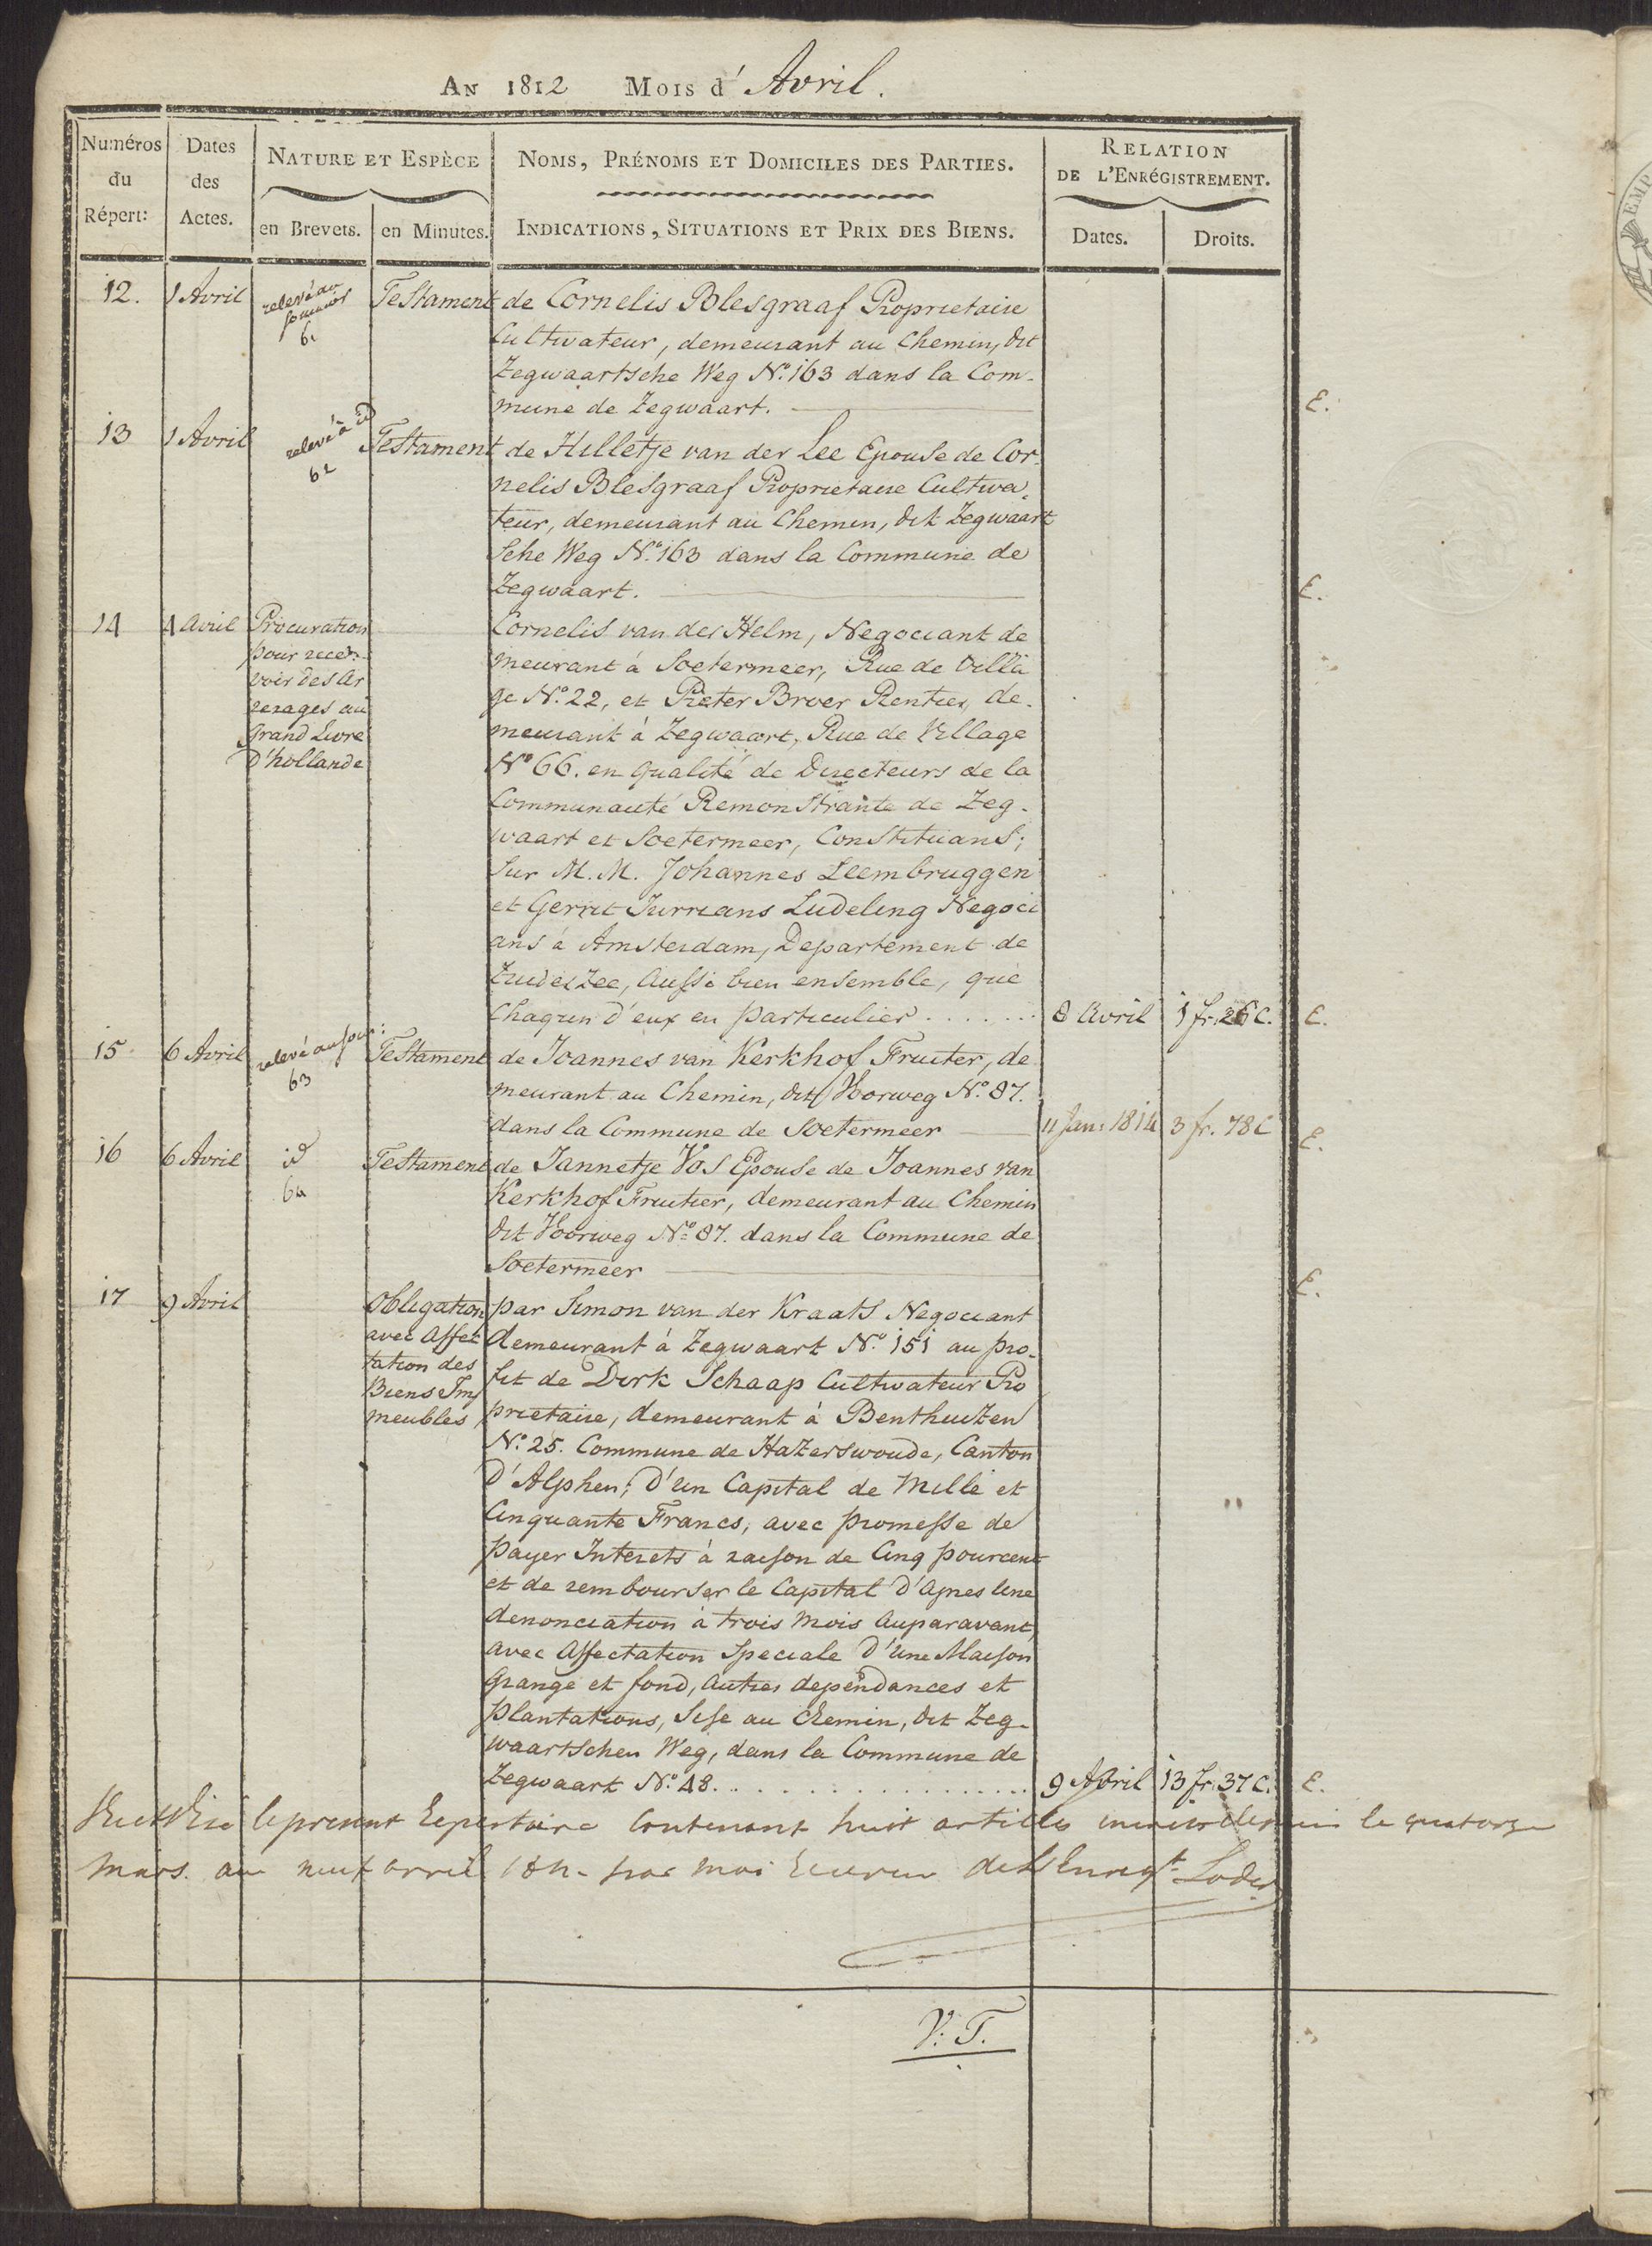 An 1812 Mois d' Avril.
Numéros du Répert:
Dates des Actes.
Nature et Espèce
en Brevets.
en Minutes.
Noms, Prénoms et Domiciles des Parties.
Indications, Situations et Prix des Biens.
Relation de l'Enrégistrement.
Dates.
Droits.
12. 1 Avril relevé au Testament de Cornelis Blesgraaf Proprietaire
61
Cultivateur, demeurant au Chemin, dit
Zegwaartsche Weg No. 163 dans la Com-
mune de Zegwaart.
E.
13 1 Avril relevé à id Testament de Hilletje van der Lee Epouse de Cor-
62
nelis Blesgraaf Proprietaire Cultiva-
teur, demeurant au Chemin, dit Zegwaart
sche Weg No. 163 dans la Commune de
Zegwaart.
E.
14 4 Avril Procuration
pour rece-
voir des Ar
rerages au
Grand Livre
d'hollande
Cornelis van der Helm, Negociant de
meurant à Soetermeer, Rue de Villa
ge No. 22, et Pieter Broer Rentier, de-
meurant à Zegwaart, Rue de Village
No 66. en qualité de Directeurs de la
Communauté Remonstrante de Zeg-
waart et Soetermeer, Constituans;
Sur M. M. Johannes Leembruggen
et Gerrit Jurrians Ludeling Negoci
ans à Amsterdam, Departement de
Zuiderzee, Aussi bien ensemble, que
Chaqun d'eux en particulier ....... 8 Avril 1 fr. 26 C. E.
15 6 Avril relevé au som: Testament de Joannes van Kerkhof Fruiter, de
63
meurant au Chemin, dit Voorweg No. 87.
dans la Commune de Soetermeer 11 Jan: 1814 3 fr. 78 C E.
16 6 Avril id Testament de Jannetje Vos Epouse de Joannes van
64
Kerkhof Fruitier, demeurant au Chemin
dit Voorweg No. 87. dans la Commune de
Soetermeer
E.
17 9 Avril Obligation
avec Affec
tation des
Biens Im
meubles
par Simon van der Kraats Negociant
demeurant à Zegwaart No. 151 au pro-
fit de Dirk Schaap Cultivateur Pro
prietaire, demeurant à Benthuizen
No. 25. Commune de Hazerswoude, Canton
d'Alphen; d'un Capital de Mille et
Cinquante Francs, avec promesse de
payer Interets à raison de Cinq pourcent
et de rembourser le Capital d'apres Une
denonciation à trois Mois Auparavant,
avec Affectation Speciale d'une Maison
Grange et fond, Autres dependances et
Plantations, Sise au Chemin, dit Zeg-
waartschen Weg, dans la Commune de
Zegwaart No. 48. ........ 9 Avril 13 fr. 37 C. E.
Vu et Visé le present Repertoire Contenant huit articles depuis le quatorze
Mars. au neuf avril 1812 par moi Receveur de l'Enregt.
V: T.